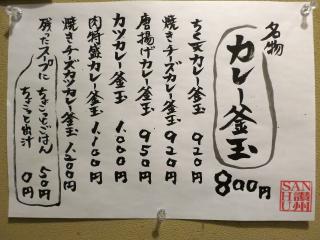 名物
カレー釜玉
800円
ちく天カレー釜玉 920円
焼きチーズカレー釜玉 920円
唐揚げカレー釜玉 950円
カツカレー釜玉 1.000円
肉特盛カレー釜玉 1.100円
焼きチーズカツカレー釜玉 1.200円
残ったスープに
ちょこっとごはん 50円
ちょこっと出汁 0円
SAN
讃州
HU